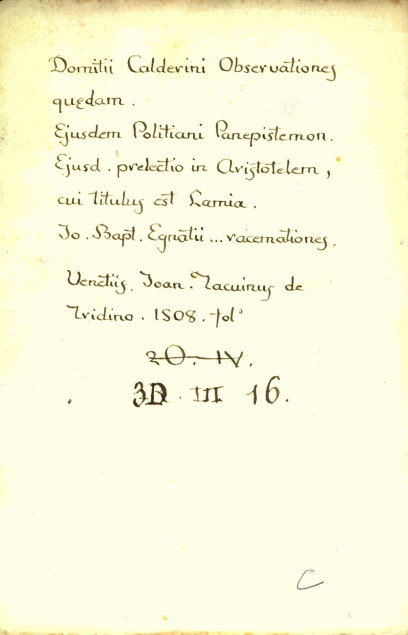 Domitii Calderini Observationes
quędam.
Ejusdem Politiani Panepistemon.
Ejusd. prelectio in Aristotelem,
cui titulus est Lamia.
Jo. Bapt. Egnatii ... racemationes.
Venetiis, Joan. Tacuinus de
Tridino. 1508. fol°
20. IV.
3D. III 16.
C